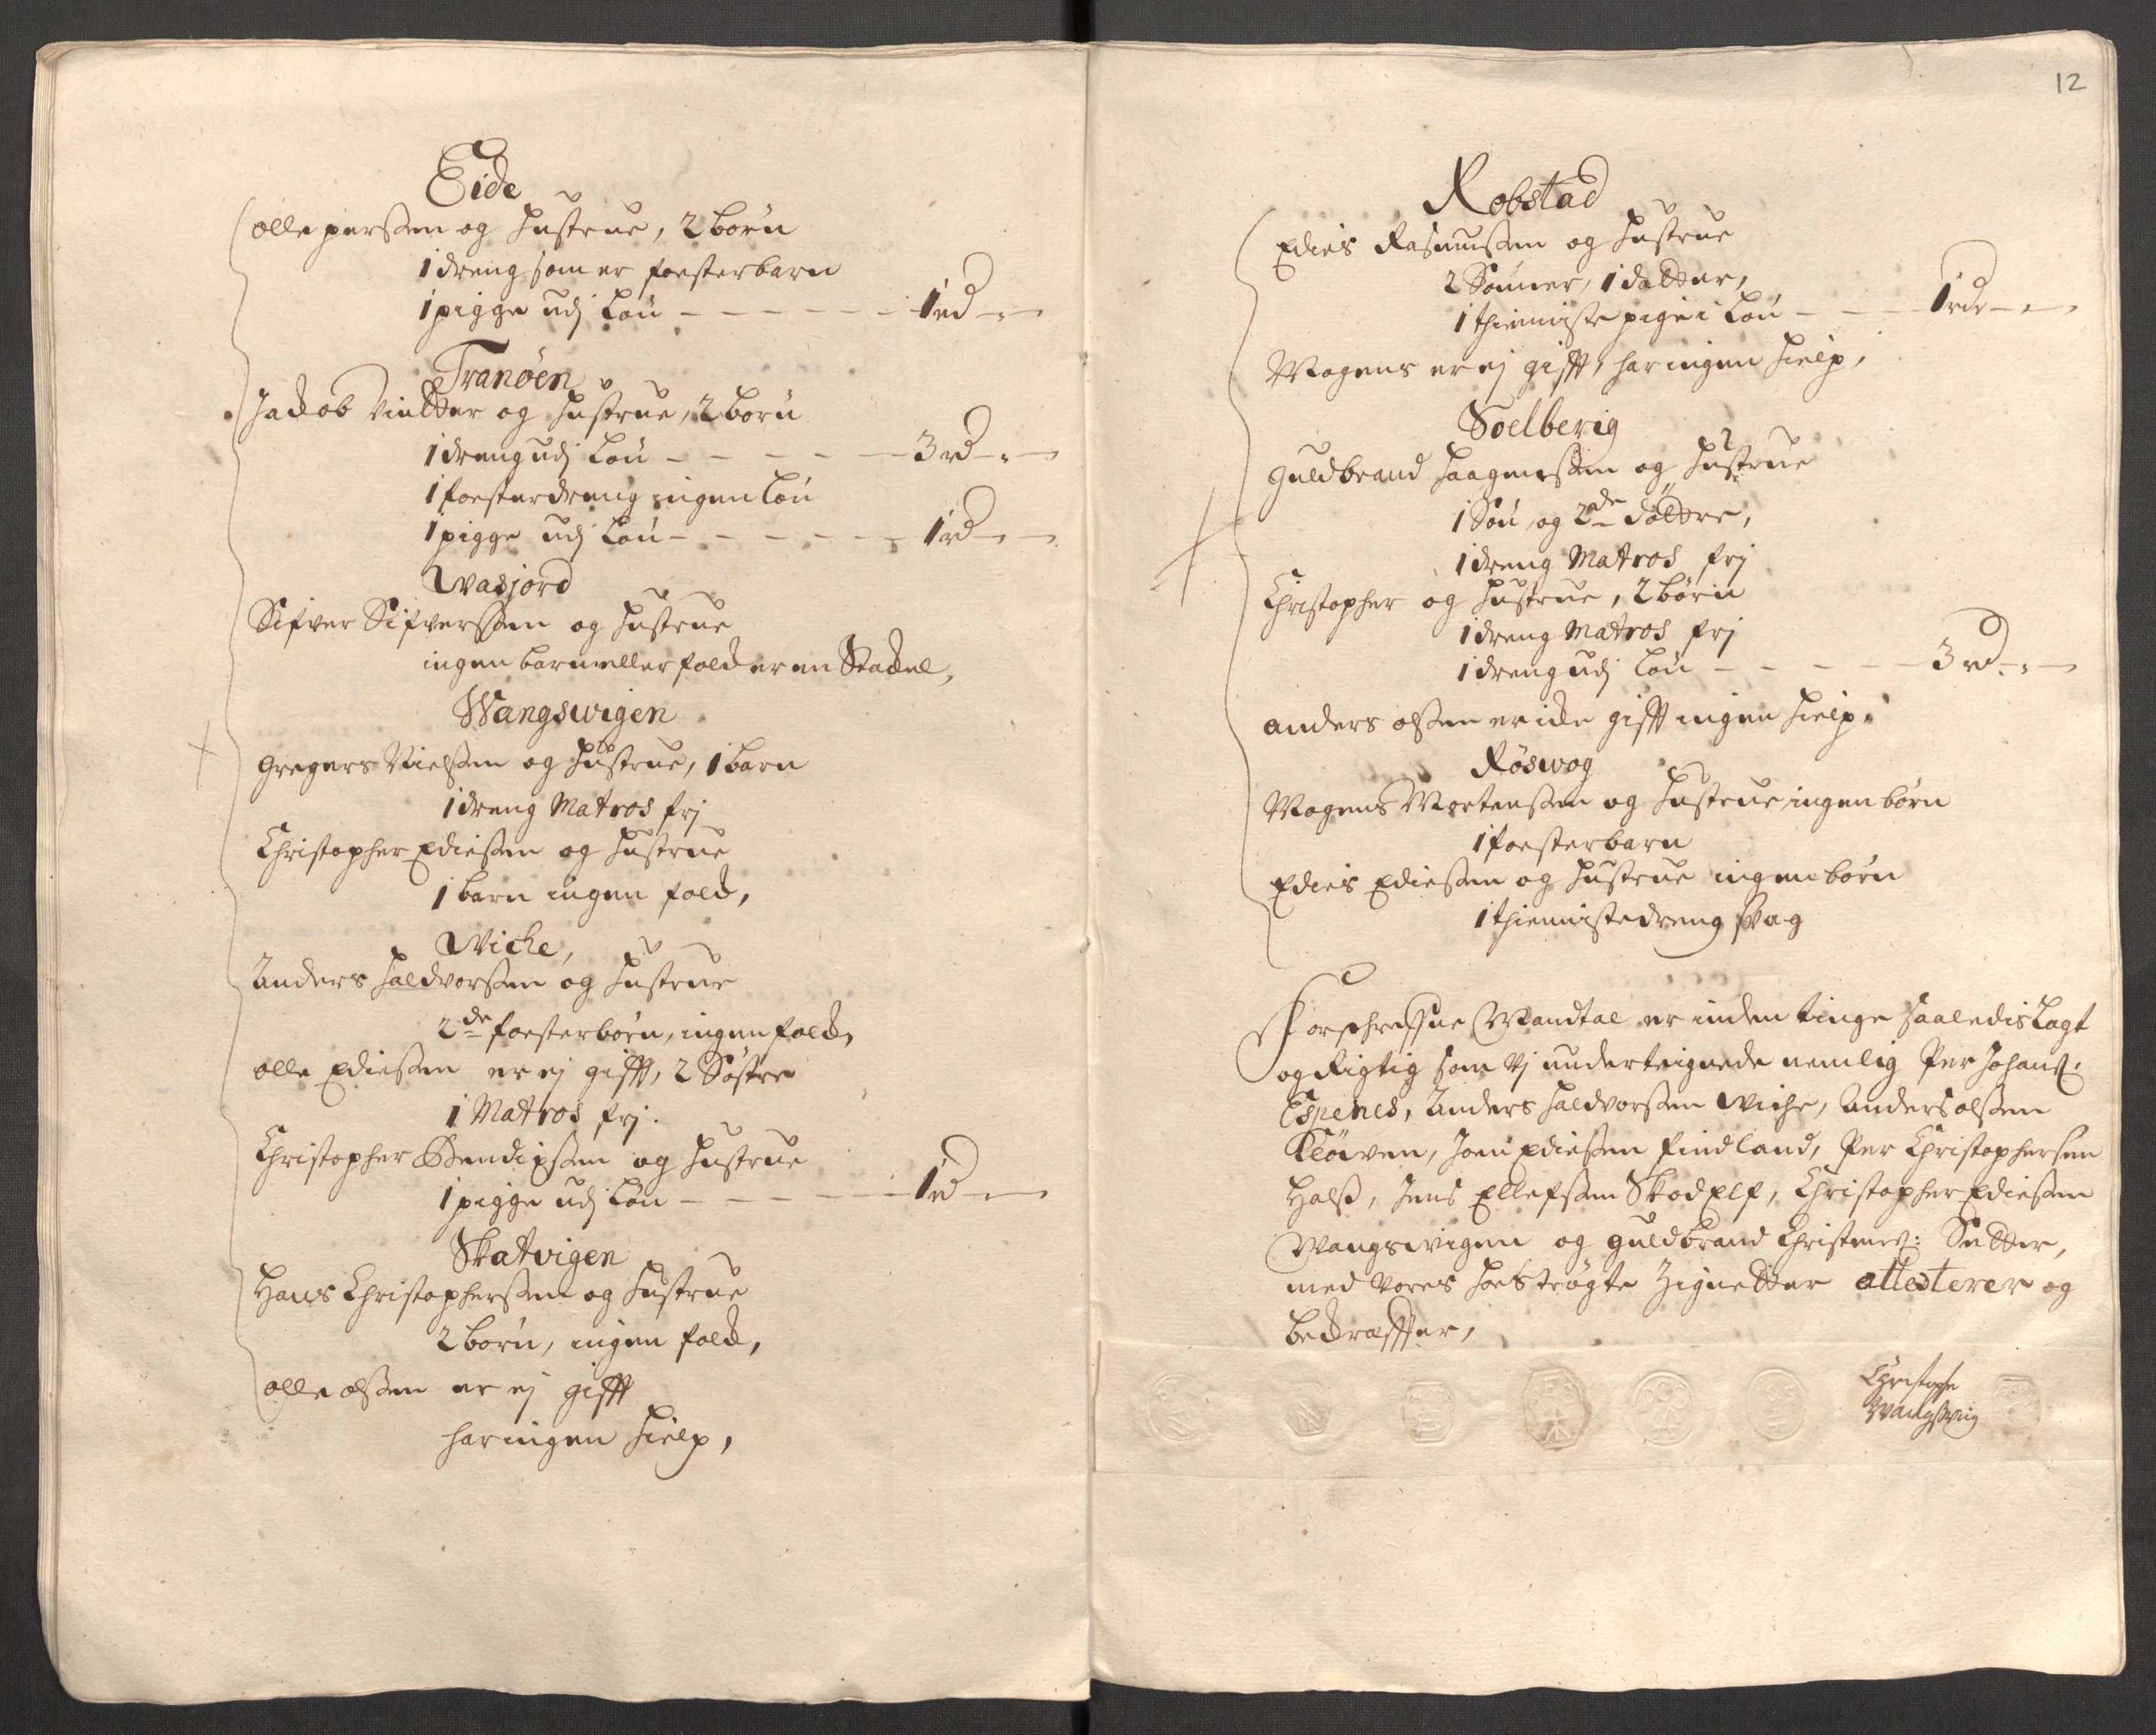 Eide
olle persen og Hustrue, 2 børn
1 dreng som er foesterbarn
1 pigge udj Løn — — — — — 1 rd — " —
Tranöen
Jackob Vintter og Hustrue, 2 børn
1 dreng udj Løn — — — — — 3 rd — " —
1 foesterdreng ingen Løn
1 pigge udj Løn — — — — — 1 rd — " —
Wasjord
Sifver Sifversen og Hustrue
ingen barn eller folck er en Stackel,
Wangswigen
Gregers Nielsen og Hustrue, 1 barn
1 dreng Matros frj
Christopher Ediesen og Hustrue
1 barn ingen folck,
Wiche,
Anders Haldvorsen og Hustrue
2de foesterbørn, ingen folck,
olle Ediesen er ej gifft, 2 Søstre
1 Matros frj.
Christopher Bendixsen og Hustrue
1 pigge udj Løn — — — — — 1 rd — " —
Skatvigen
Hans Christophersen og Hustrue
2 børn, ingen folck,
olle olsen er ej gifft
har ingen hielp,
12
Robstad
Edies Rasmusen og Hustrue
2 Sønner, 1 datter,
1 thienniste pige i Løn — — — 1 rdr — " —
Mogens er ej gifft, har ingen hielp,
Soelberig
Guldbrand Haagensen og Hustrue
1 Søn, og 2de døttre,
1 dreng Matros frj
Christopher og Hustrue, 2 børn
1 dreng Matros frj
1 dreng udj Løn — — — — — 3 rd — " —
anders olsen er icke gifft ingen hielp.
Røswog
Mogens Mortensen og Hustrue ingen børn
1 foesterbarn
Edies Ediesen og Hustrue ingen børn
1 thiennistedreng svag
Forschrefne Mandtal er inden tinge saaledis Lagt
og Rigtig som Vj underteignede nemlig Per Johans:
Espenes, Anders Haldvorsen Wiche, Anders olsen
Kløwen, Joen Ediesen Findland, Per Christophersen
Hals, Jens Ellefsen SkodElf, Christopher Ediesen
Wangswigen og Guldbrand Christens: Setter,
med Vores hostrøgte Zignetter attesterer og
bekræffter,
Christopher
Wangswig